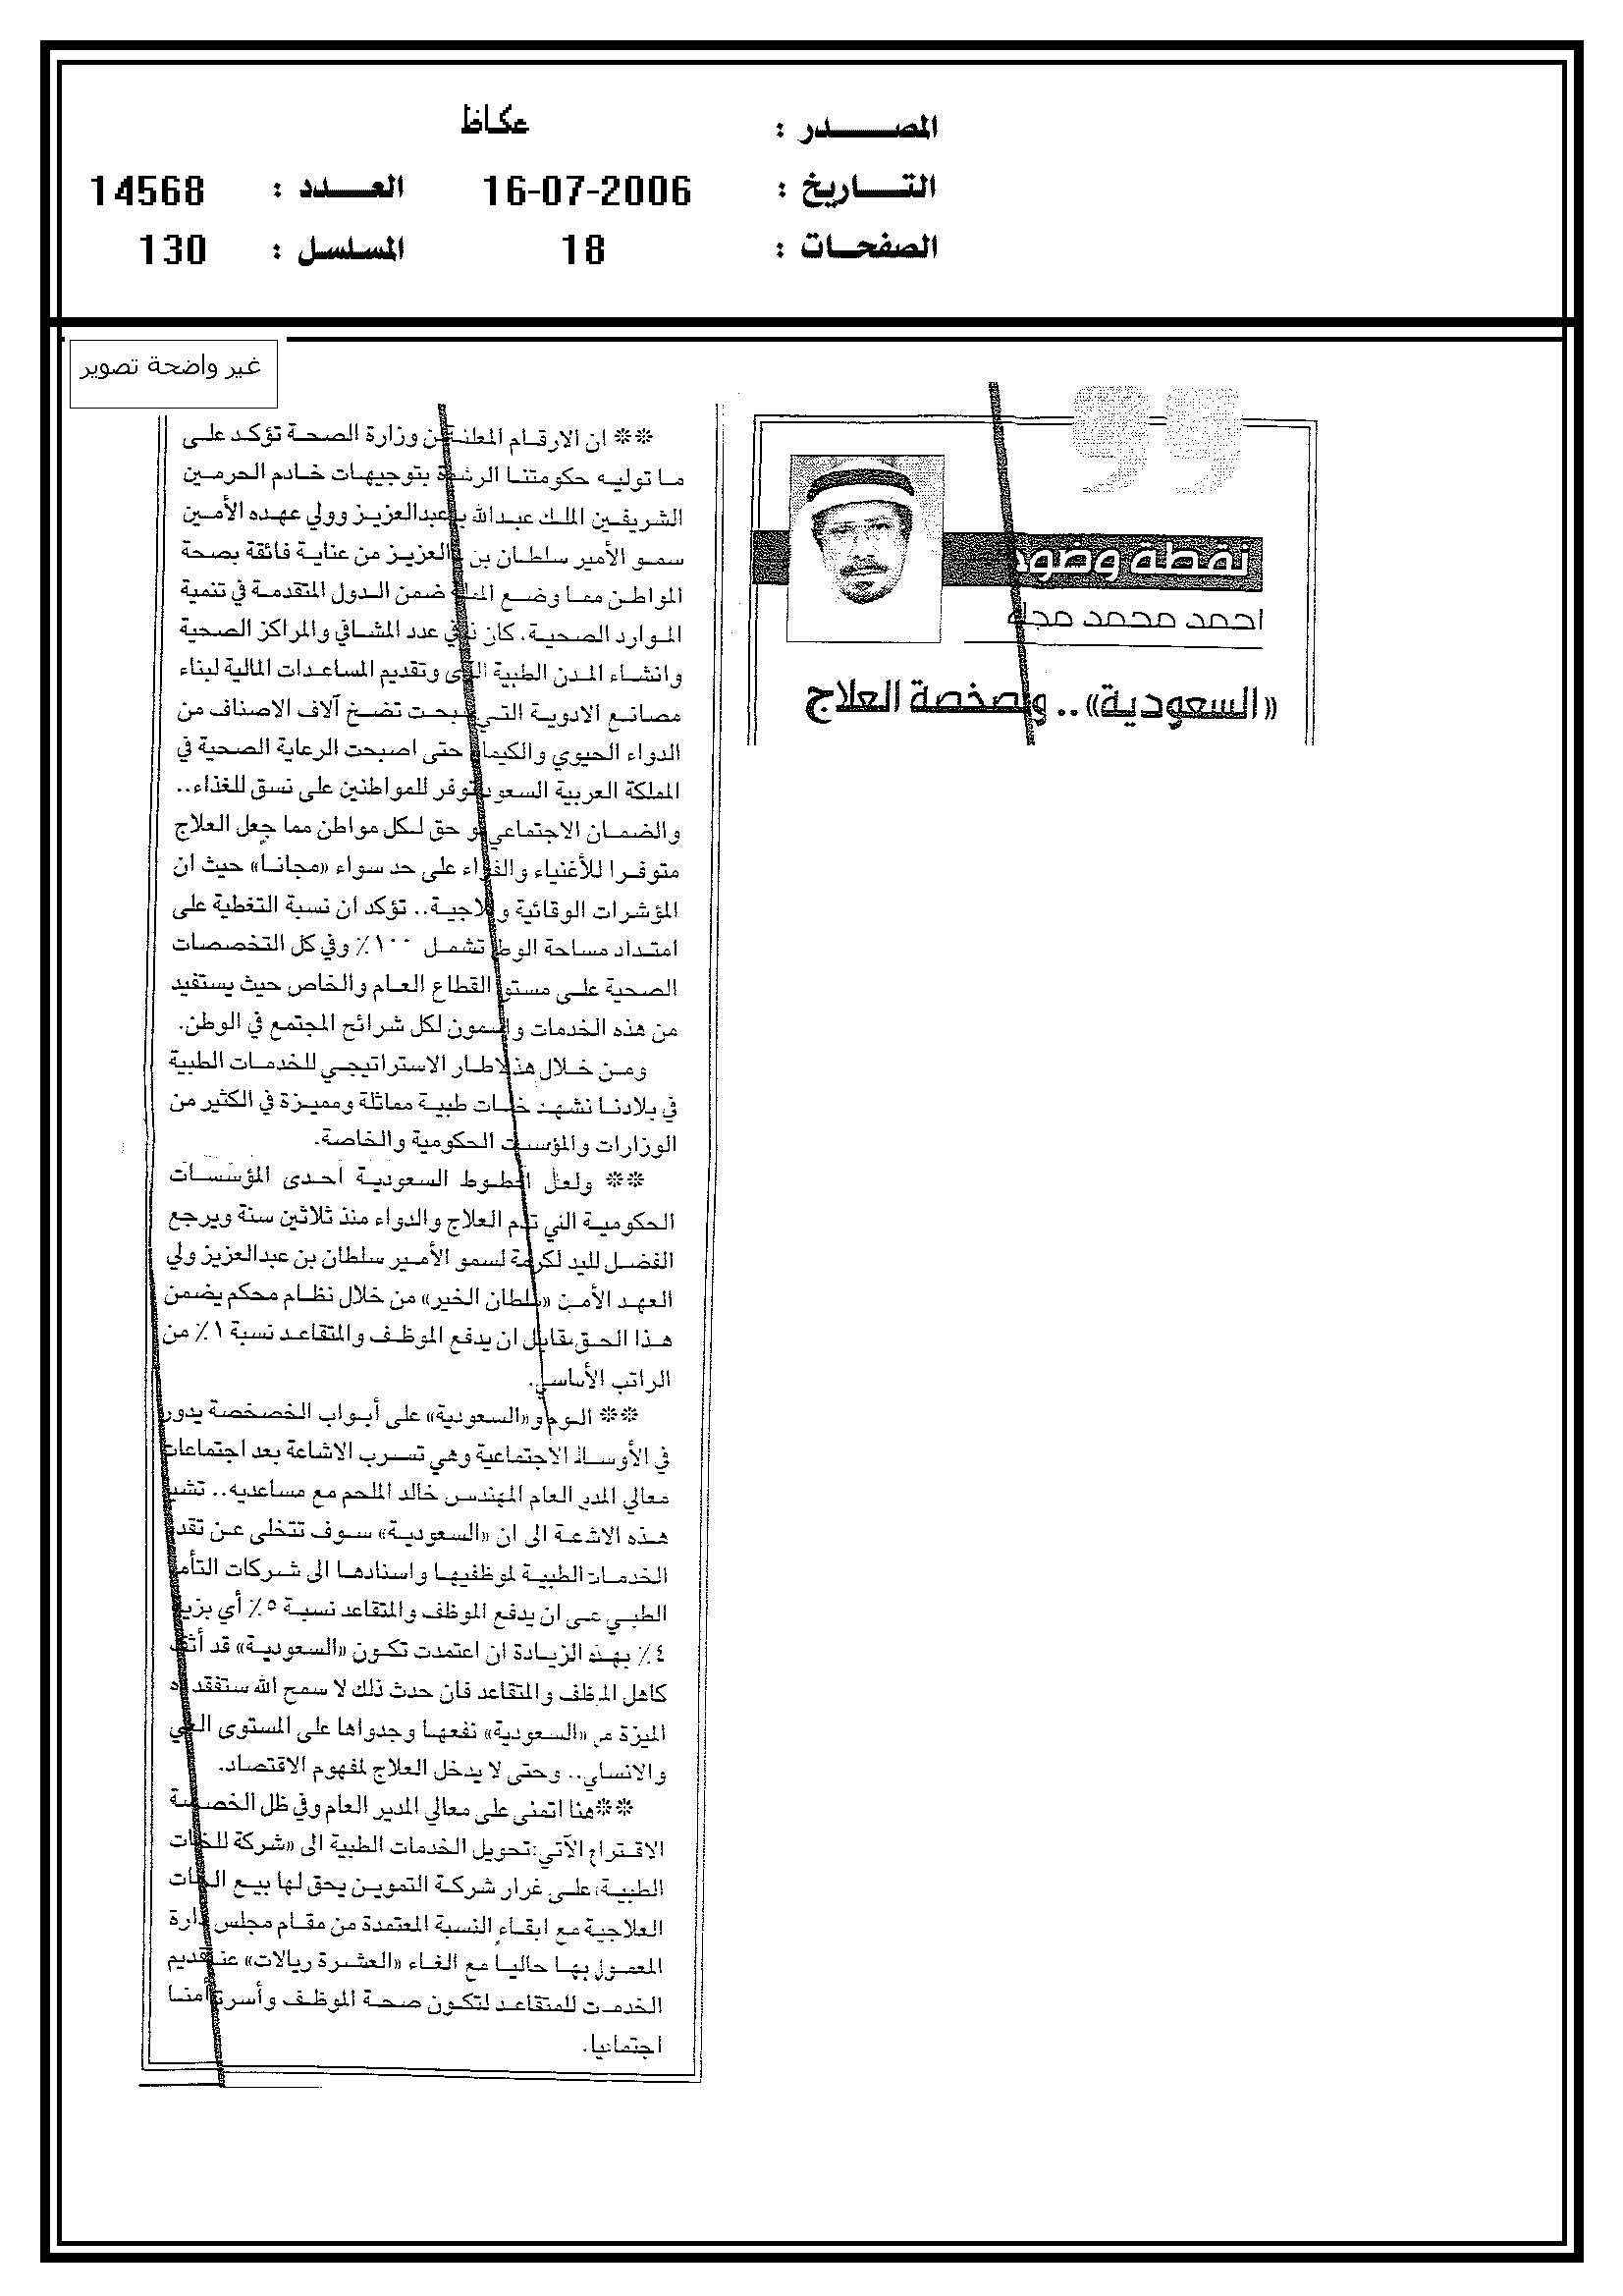 المصدر : عكاظ
التاريخ : 16-07-2006 العدد : 14568
الصفحات : 18 المسلسل : 130
غير واضحة تصوير
نقطة وضوء
احمد محمد
«السعودية».. وخصخصة العلاج
** ان الارقام المعلنة من وزارة الصحة تؤكد على
ما توليه حكومتنا الرشيدة بتوجيهات خادم الحرمين
الشريفين الملك عبدالله بن عبدالعزيز وولي عهده الأمين
سمو الأمير سلطان بن عبدالعزيز من عناية فائقة بصحة
المواطن مما وضع المملكة ضمن الدول المتقدمة في تنمية
الموارد الصحية، كان عدد المشافي والمراكز الصحية
وانشاء المدن الطبية وتقديم المساعدات المالية لبناء
مصانع الادوية التي اصبحت تضخ آلاف الاصناف من
الدواء الحيوي والكيميائي حتى اصبحت الرعاية الصحية في
المملكة العربية السعودية تتوفر للمواطنين على نسق للغذاء..
والضمان الاجتماعي حق لكل مواطن مما جعل العلاج
متوفرا للأغنياء والفقراء على حد سواء «مجاناً» حيث ان
المؤشرات الوقائية والعلاجية.. تؤكد ان نسبة التغطية على
امتداد مساحة الوطن تشمل ١٠٠٪ وفي كل التخصصات
الصحية على مستوى القطاع العام والخاص حيث يستفيد
من هذه الخدمات لكل شرائح المجتمع في الوطن.
ومن خلال هذا الاطار الاستراتيجي للخدمات الطبية
في بلادنا نشهد خدمات طبية مماثلة ومميزة في الكثير من
الوزارات والمؤسسات الحكومية والخاصة.
** ولعل الخطوط السعودية احدى المؤسسات
الحكومية التي تقدم العلاج والدواء منذ ثلاثين سنة ويرجع
الفضل لليد الكريمة لسمو الأمير سلطان بن عبدالعزيز ولي
العهد الأمين «سلطان الخير» من خلال نظام محكم يضمن
هذا الحق مقابل ان يدفع الموظف والمتقاعد نسبة ١٪ من
الراتب الأساسي.
** اليوم و«السعودية» على أبواب الخصخصة يدور
في الأوساط الاجتماعية وهي تسرب الاشاعة بعد اجتماعات
معالي المدير العام المهندس خالد الملحم مع مساعديه.. تشير
هذه الاشاعة الى ان «السعودية» سوف تتخلى عن تقديم
الخدمات الطبية لموظفيها واسنادها الى شركات التأمين
الطبي على ان يدفع الموظف والمتقاعد نسبة ٥٪ أي بزيادة
٤٪ بهذه الزيادة ان اعتمدت تكون «السعودية» قد أثقلت
كاهل الموظف والمتقاعد فان حدث ذلك لا سمح الله ستفقد هذه
الميزة من «السعودية» نفعها وجدواها على المستوى
والانساني.. وحتى لا يدخل العلاج لمفهوم الاقتصاد.
** هنا اتمنى على معالي المدير العام وفي ظل الخصخصة
الاقتراح الآتي: تحويل الخدمات الطبية الى «شركة للخدمات
الطبية» على غرار شركة التموين يحق لها بيع الخدمات
العلاجية مع ابقاء النسبة المعتمدة من مقام مجلس الادارة
المعمول بها حاليا مع الغاء «العشرة ريالات» عند تقديم
الخدمات للمتقاعد لتكون صحة الموظف وأسرته أمنا
اجتماعيا.